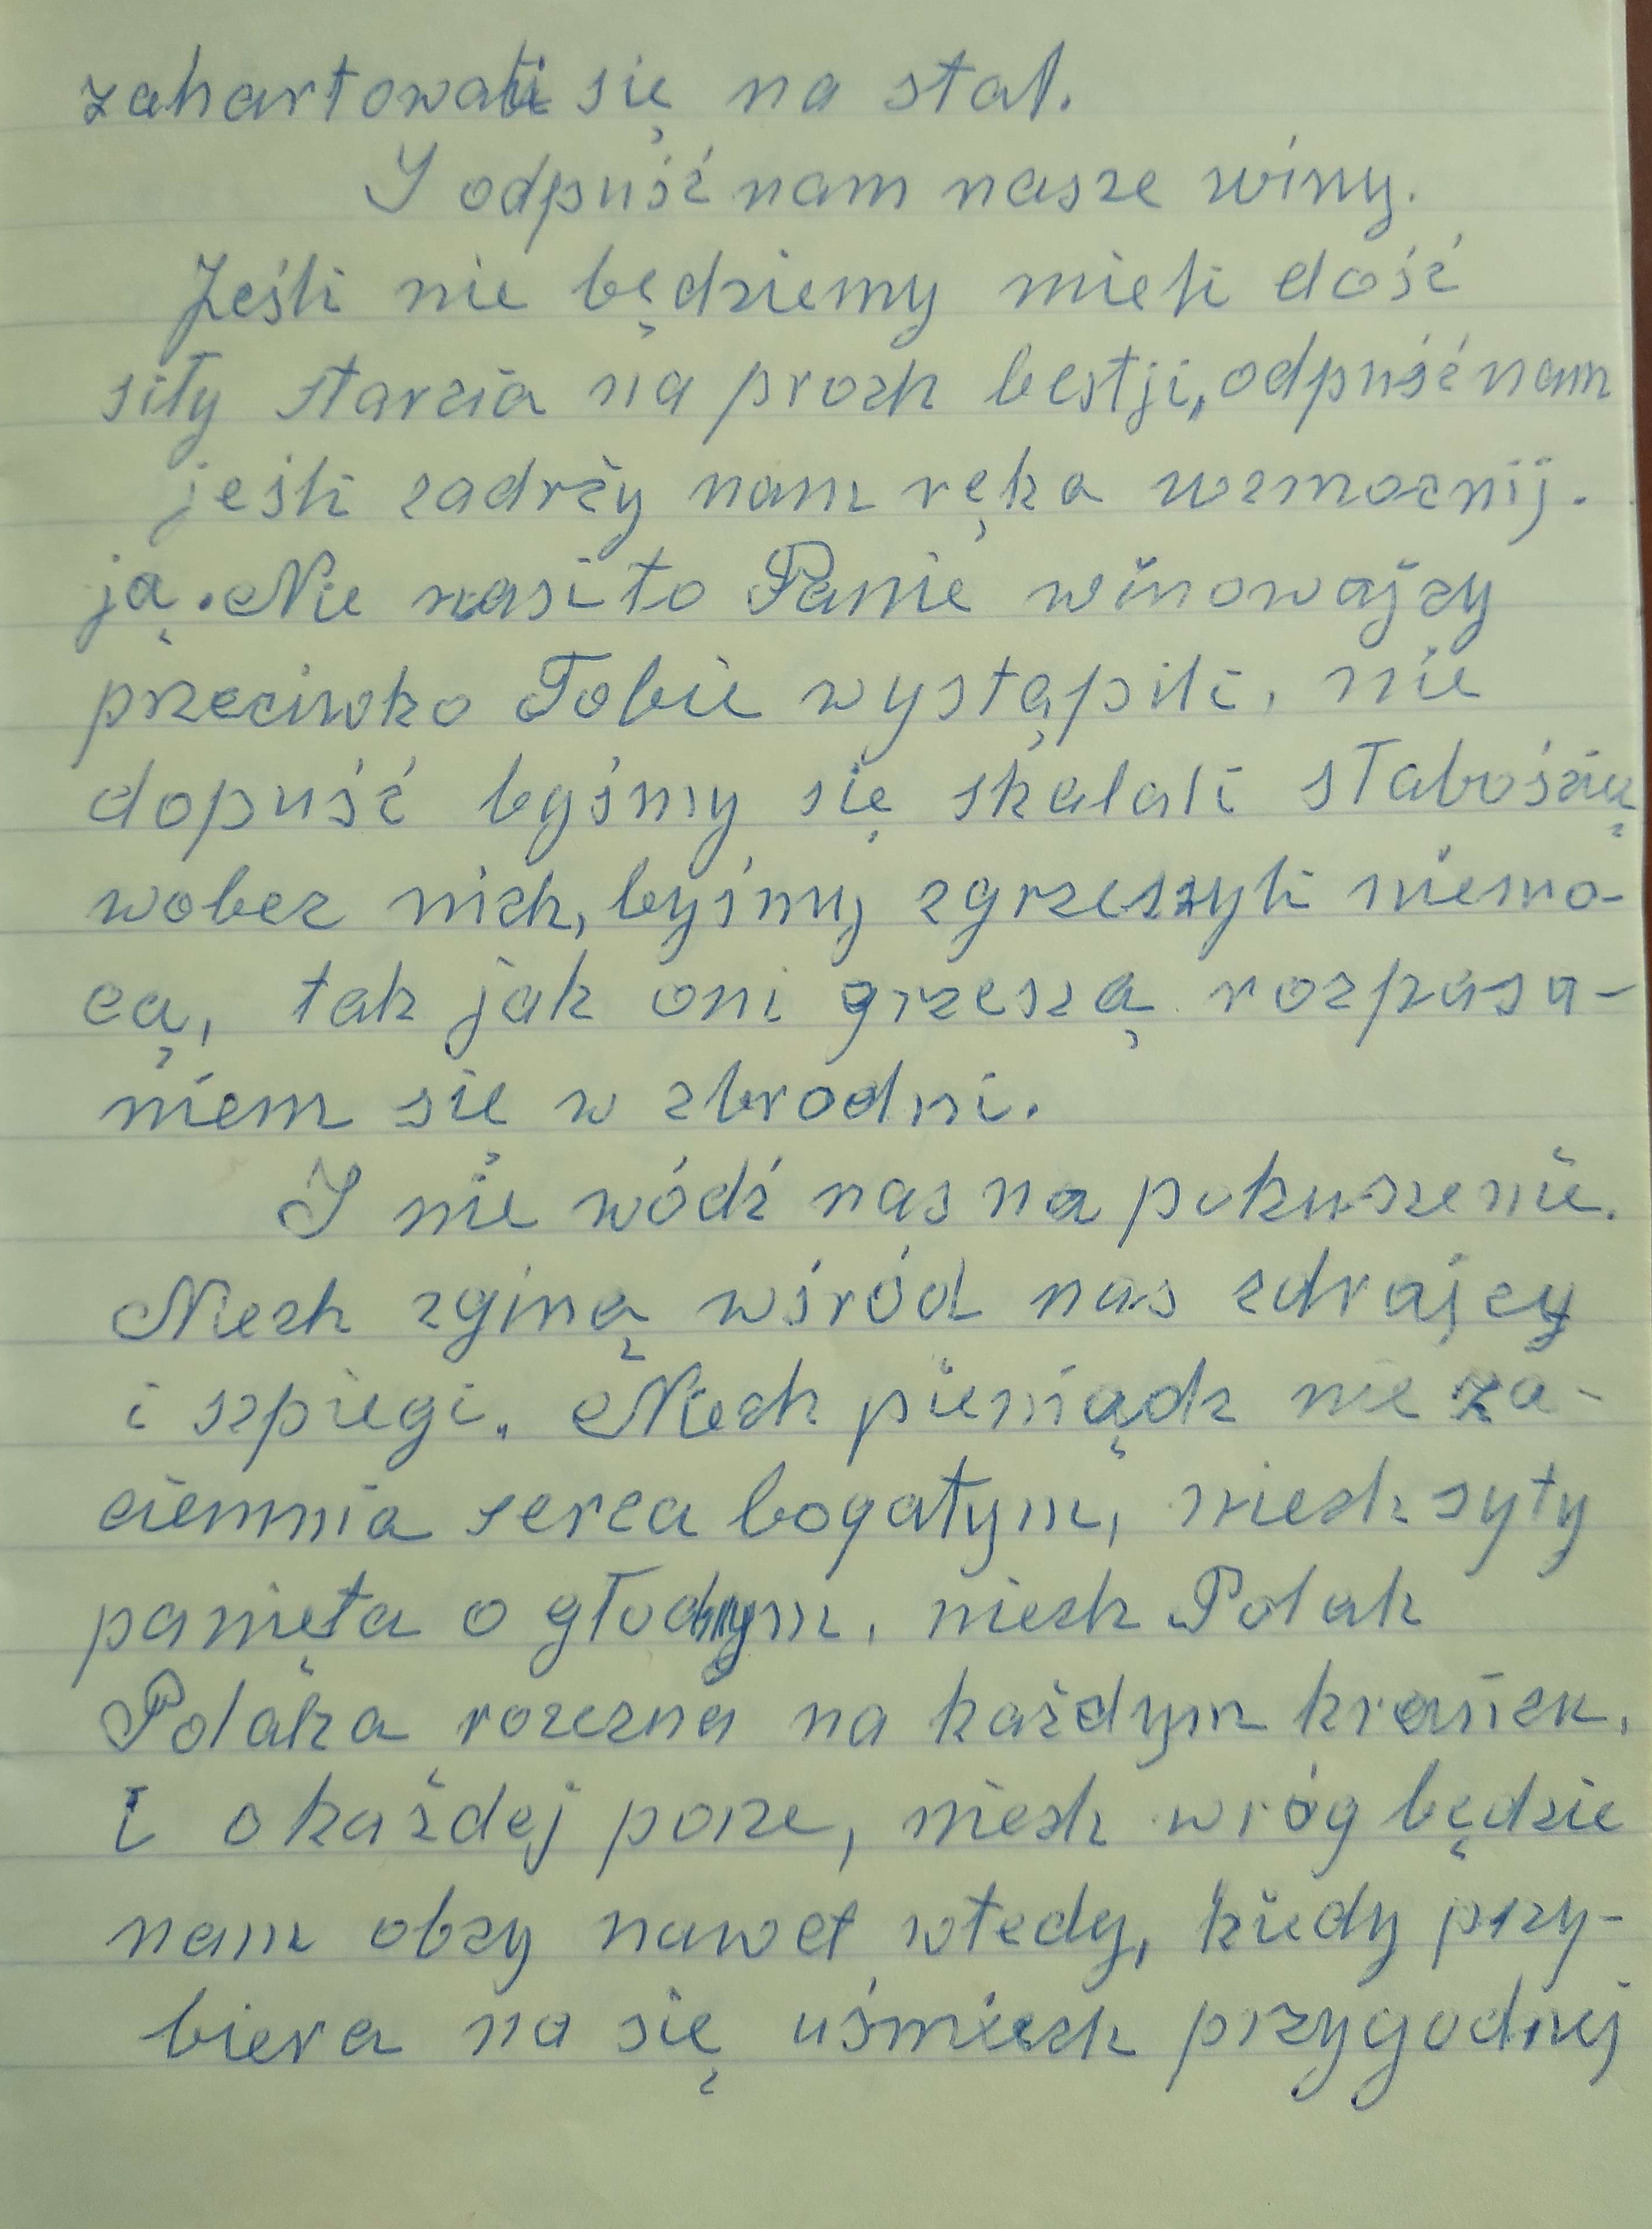 zahartowali się na stal.
I odpuść nam nasze winy.
Jeśli nie będziemy mieli dość
siły starcia na proch bestji, odpuść nam
jeśli zadrży nam ręka wzmocnij.
ją. Nie nasi to Panie winowajcy
przeciwko Tobie wystąpili, nie
dopuść byśmy się skalali słabością
wobec nich, byśmy zgrzeszyli niemo-
cą, tak jak oni grzeszą rozpasa-
niem się w zbrodni.
I nie wódź nas na pokuszenie.
Niech zginą wśród nas zdrajcy
i szpiegi. Niech pieniądz nie za-
ciemnia serca bogatym, niech syty
pamięta o głodnym, niech Polak
Polaka rozezna na każdym krańcu,
I o każdej porze, niech wróg będzie
nam obcy nawet wtedy, kiedy przy-
biera na się uśmiech przygodnej